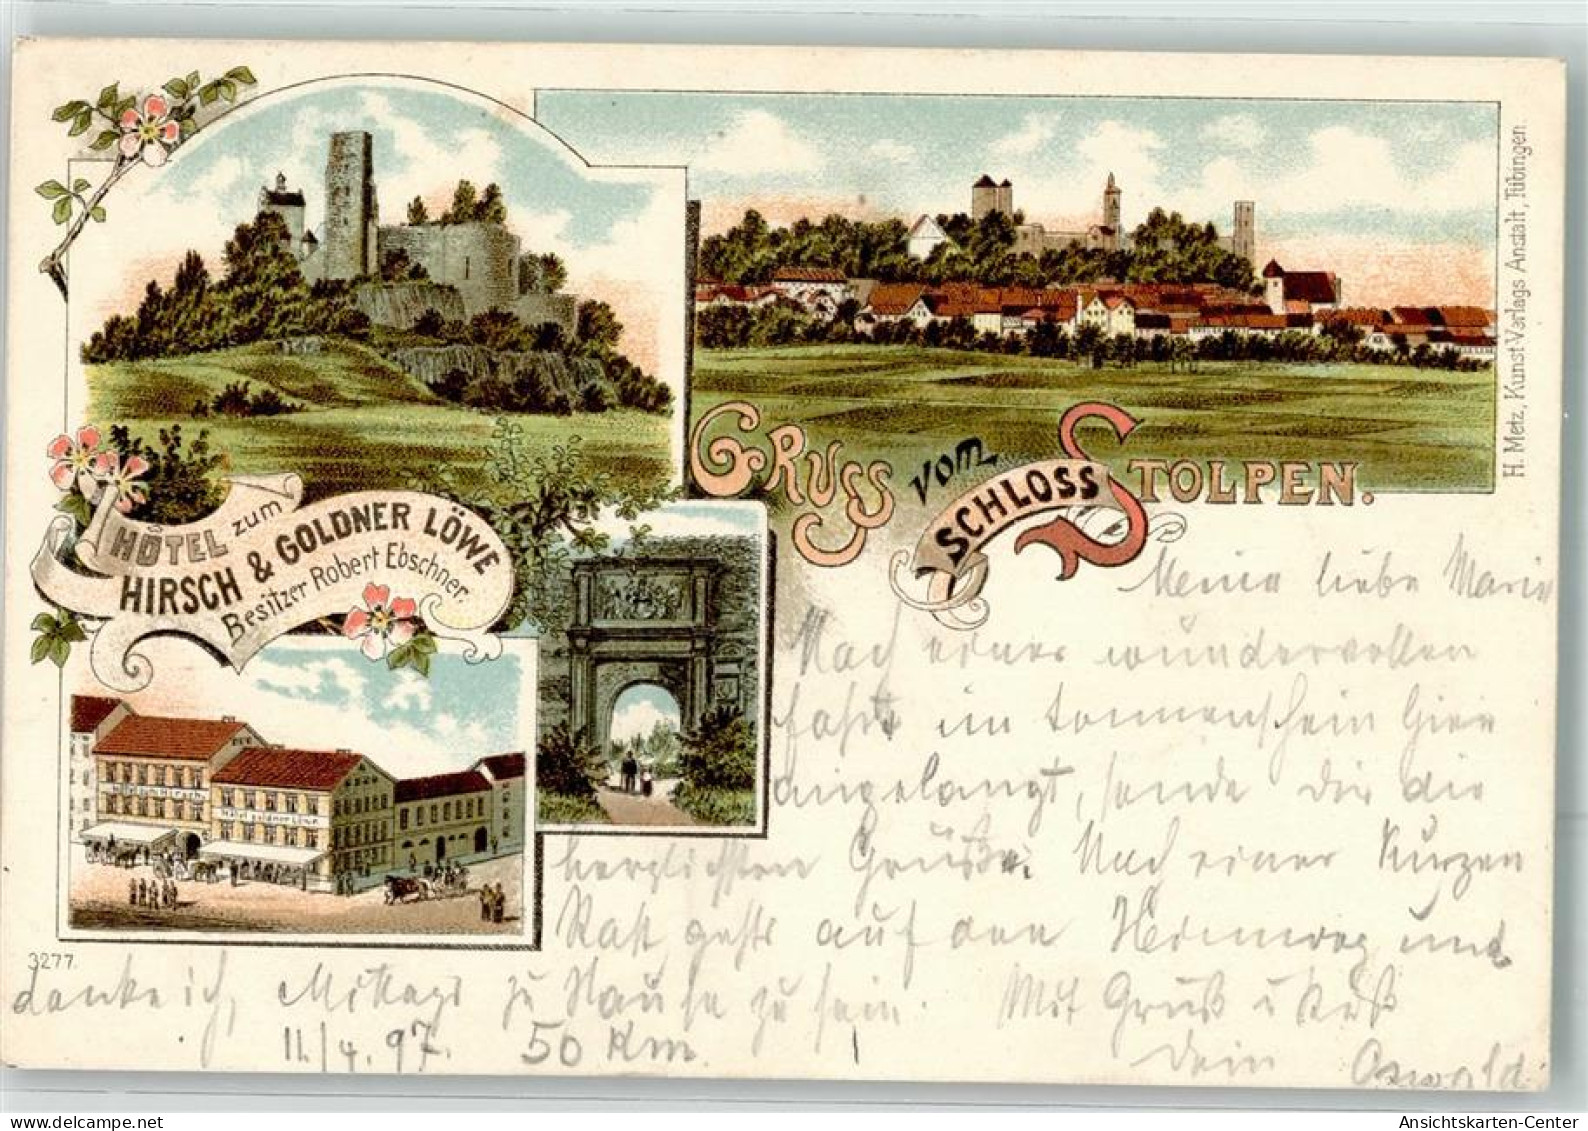 GRUSS vom
SCHLOSS STOLPEN.
H. Metz, Kunst Verlags Anstalt, Tübingen.
HÔTEL zum
HIRSCH & GOLDNER LÖWE
Besitzer Robert Ebschner.
Hôtel zum Hirsch.
Hôtel goldner Löwe
3277.
Meine liebe Marie
Nach einer wundervollen
Fahrt im Sonnenschein hier
angelangt, sende Dir die
herzlichsten Grüße. Nach einer kurzen
Rast gehts auf den Heimweg und
denke ich, Mittags zu Hause zu sein. Mit Gruß u Kuß
11./4. 97. 50 Km. Dein Oswald
Ansichtskarten-Center
Ansichtskarten-Center